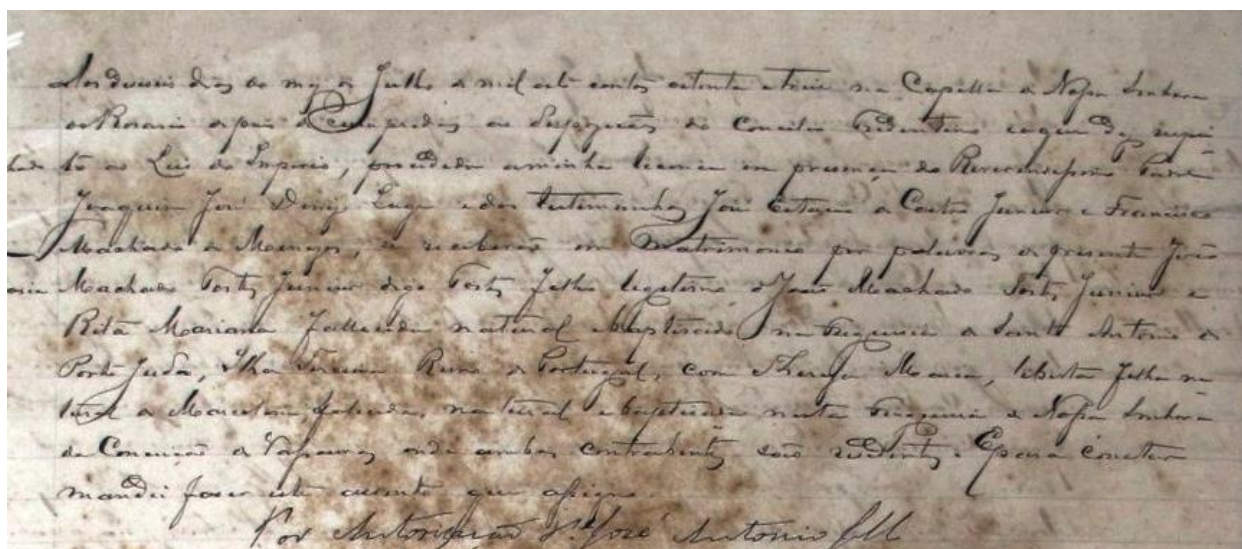 Aos dezeseis dias do mez de Julho de mil oito centos oitenta e treis na Capella de Nossa Senhora
do Rosario depois de cumpridas as disposições do Concilio Tridentino e
to as Leis do Imperio, precedendo a minha licença em presença do Reverendissimo Padre
Joaquim José Diniz Lage e das testemunhas José Estacio de Castro Junior e Francisco
Machado de Menezes, se receberão em Matrimonio por palavras de presente João
Machado Fortes Junior digo Fortes filho legitimo de João Machado Fortes Junior e
Rita Mariana fallecida natural e baptisado na Freguesia de Santo Antonio de
Porto Judeo, Ilha Terceira Reino de Portugal, com Theresa Maria, liberta filha na
tural de Marcelina fallecida, natural e baptisada nesta Freguesia de Nossa Senhora
da Conceição de Vassouras onde ambos contrahentes são residentes. E para constar
mandei fazer este assento que assigno.
Por Autorização José Antonio